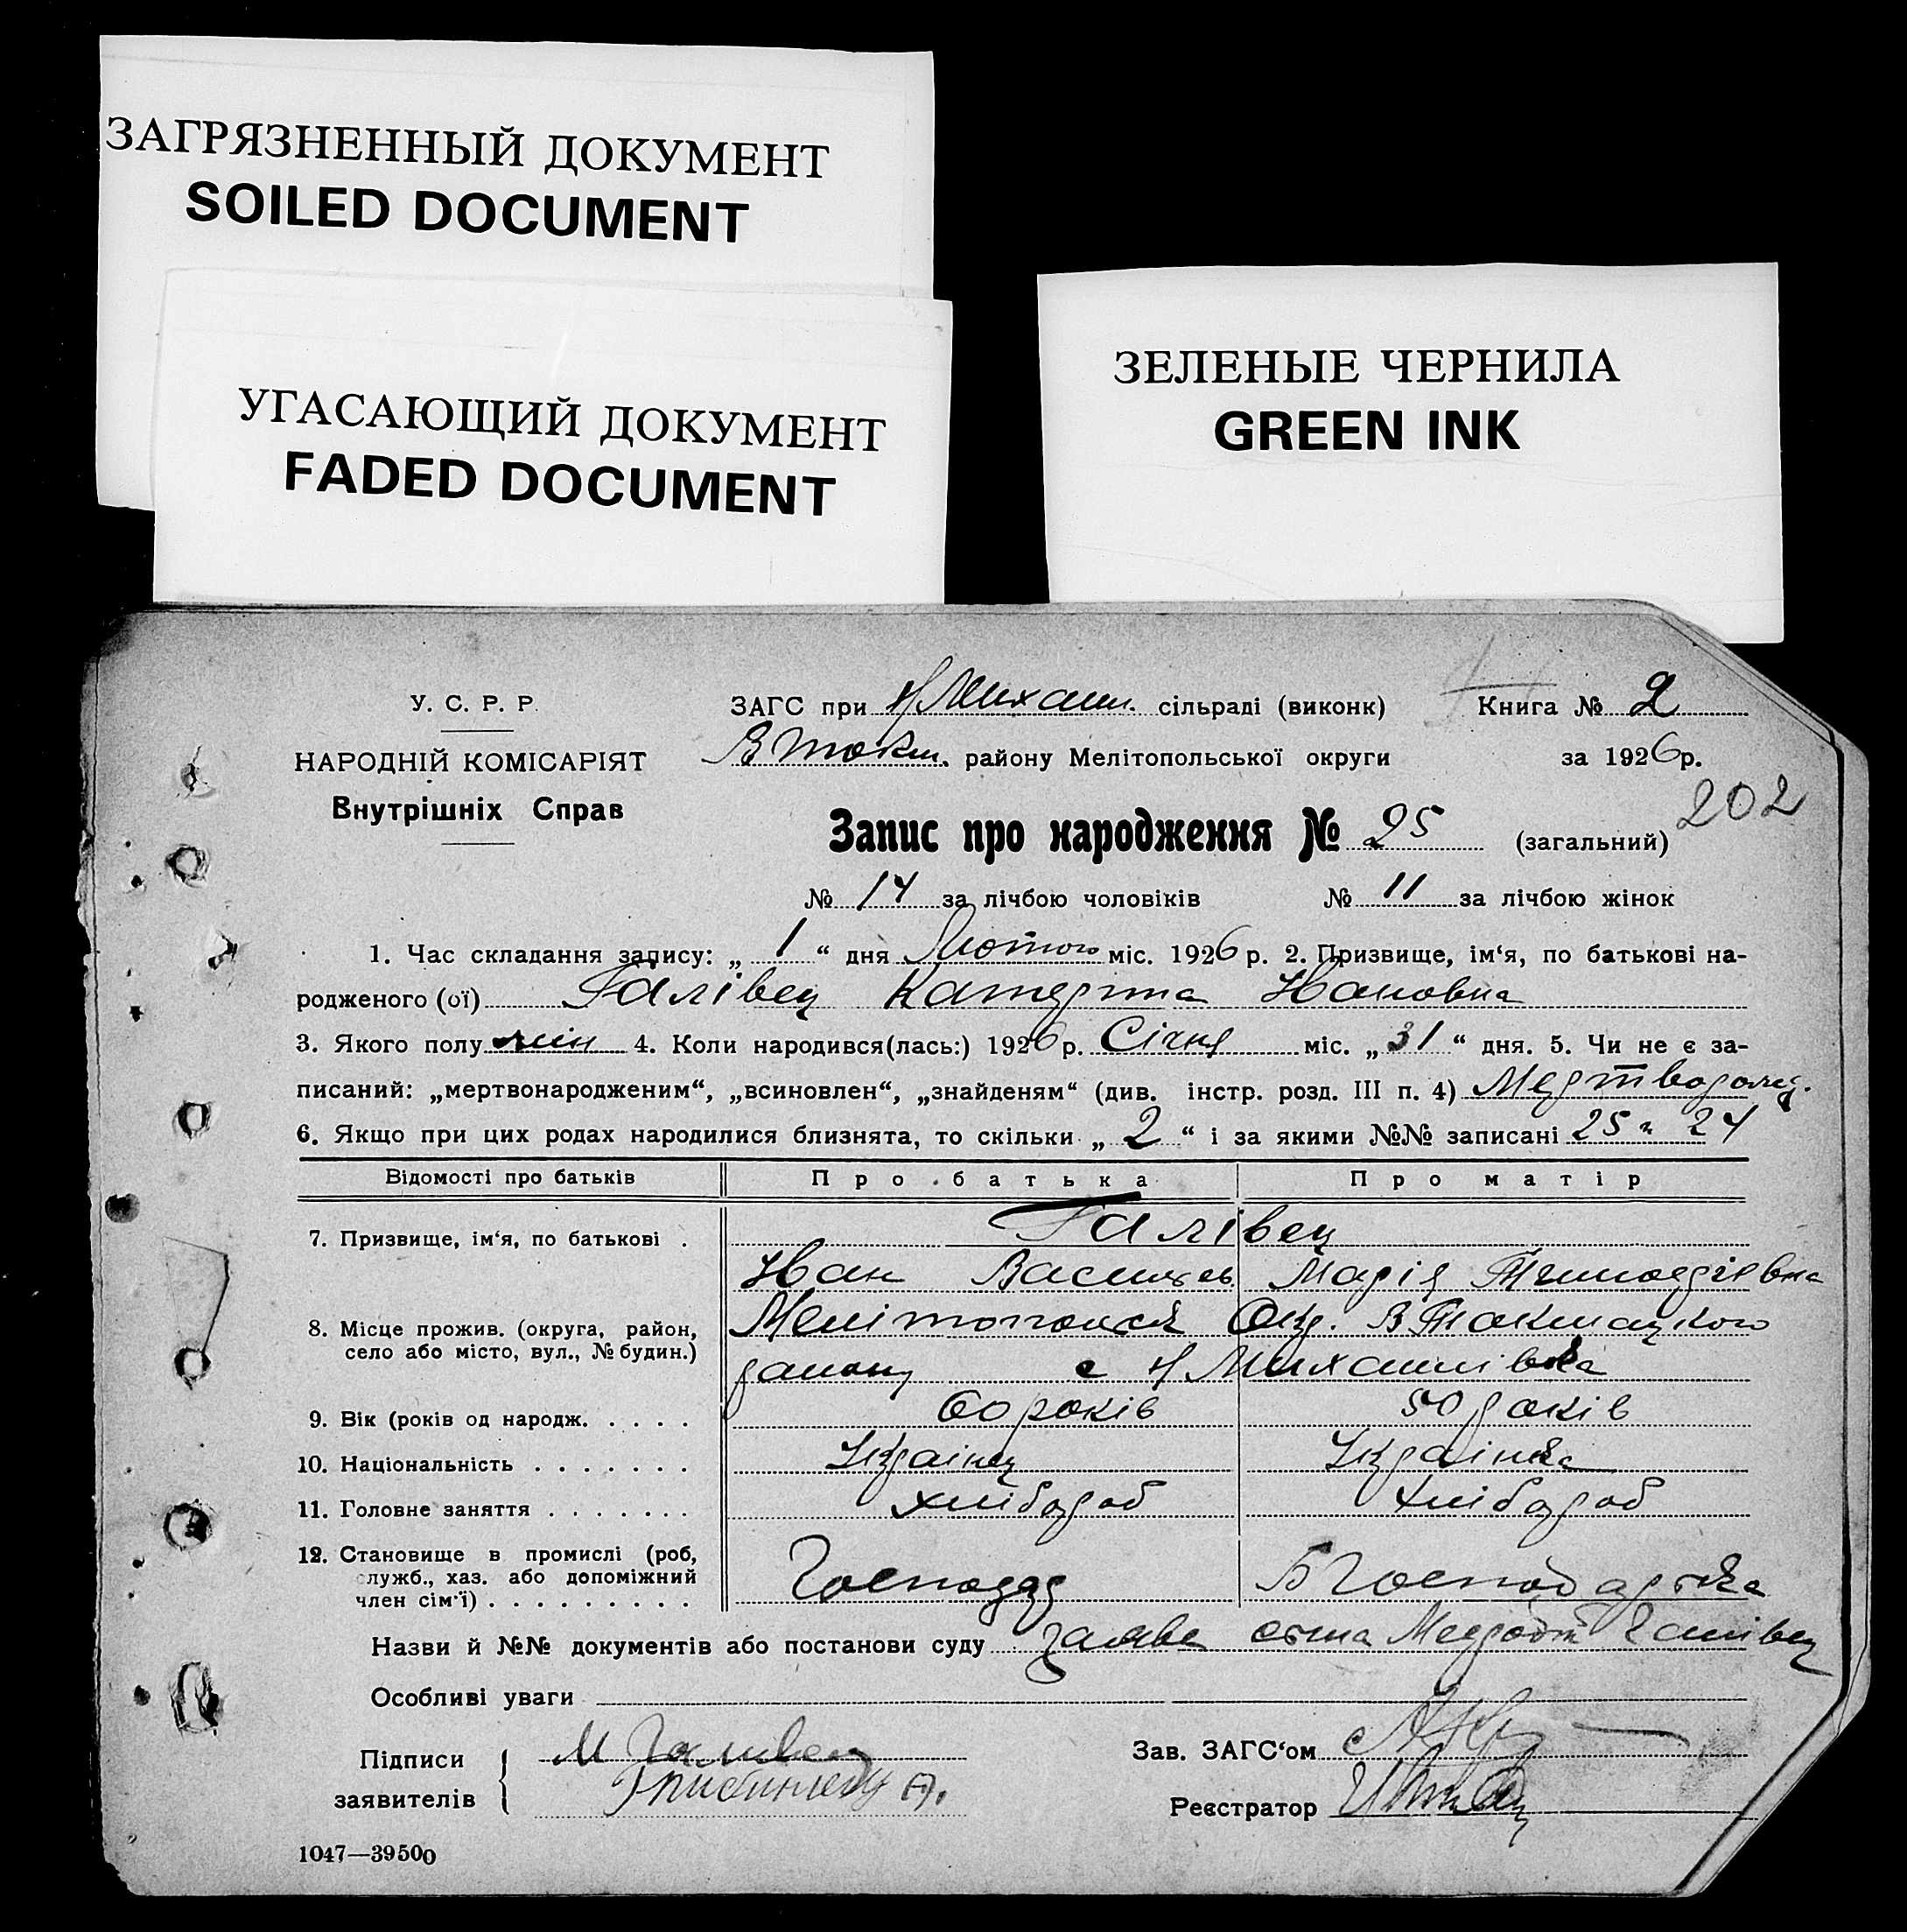 ЗАГРЯЗНЕННЫЙ ДОКУМЕНТ
SOILED DOCUMENT
УГАСАЮЩИЙ ДОКУМЕНТ
FADED DOCUMENT
ЗЕЛЕНЫЕ ЧЕРНИЛА
GREEN INK
У. С. Р. Р.
НАРОДНІЙ КОМІСАРІЯТ
Внутрішніх Справ
ЗАГС при Н Михайл. сільраді (виконк)
Книга № 2
В Токм. району Мелітопольської округи
за 1926 р.
202
Запис про народження № 25 (загальний)
№ 14 за лічбою чоловіків № 11 за лічбою жінок
1. Час складання запису: „ 1 “ дня Лютого міс. 1926 р. 2. Призвище, ім‘я, по батькові на-
родженого (ої) Галівец Катерина Ивановна
3. Якого полу жін 4. Коли народився(лась:) 1926 р. Січня міс. „ 31 “ дня. 5. Чи не є за-
писаний: „мертвонародженим“, „всиновлен“, „знайденям“ (див. інстр. розд. III п. 4)
6. Якщо при цих родах народилися близнята, то скільки „ 2 “ і за якими №№ записані 25 и 24
Відомості про батьків Про батька Про матір
7. Призвище, ім‘я, по батькові . Галівец
Иван Васильев. Марія
8. Місце прожив. (округа, район, село або місто, вул., № будин.) Мелітопольск Окр. В Токмацкого
району с Н Михайлівка
9. Вік (років од народж. . . . . 60 років 50 років
10. Національність . . . . . . . Українец Українка
11. Головне заняття . . . . . . . хлібороб хлібороб
12. Становище в промислі (роб, служб., хаз. або допоміжний член сім‘ї) . . . . . . . . . Господар Господарька
Назви й №№ документів або постанови суду заява Галівец
Особливі уваги
Підписи заявителів { М Галивец
Зав. ЗАГС‘ом
Реєстратор
1047—39500